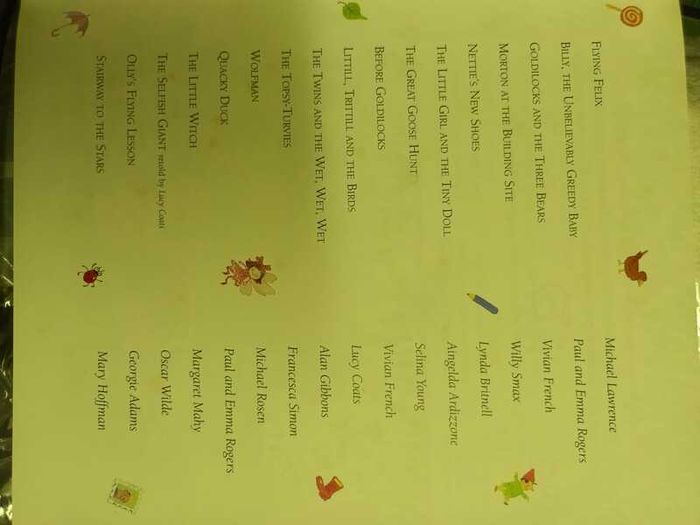 FLYING FELIX Michael Lawrence
BILLY, THE UNBELIEVABLY GREEDY BABY Paul and Emma Rogers
GOLDILOCKS AND THE THREE BEARS Vivian French
MORTON AT THE BUILDING SITE Willy Smax
NETTIE'S NEW SHOES Lynda Britnell
THE LITTLE GIRL AND THE TINY DOLL Aingelda Ardizzone
THE GREAT GOOSE HUNT Selina Young
BEFORE GOLDILOCKS Vivian French
LITTILL, TRITTILL AND THE BIRDS Lucy Coats
THE TWINS AND THE WET, WET, WET Alan Gibbons
THE TOPSY-TURVIES Francesca Simon
WOLFMAN Michael Rosen
QUACKY DUCK Paul and Emma Rogers
THE LITTLE WITCH Margaret Mahy
THE SELFISH GIANT retold by Lucy Coats Oscar Wilde
OLLY'S FLYING LESSON Georgie Adams
STAIRWAY TO THE STARS Mary Hoffman